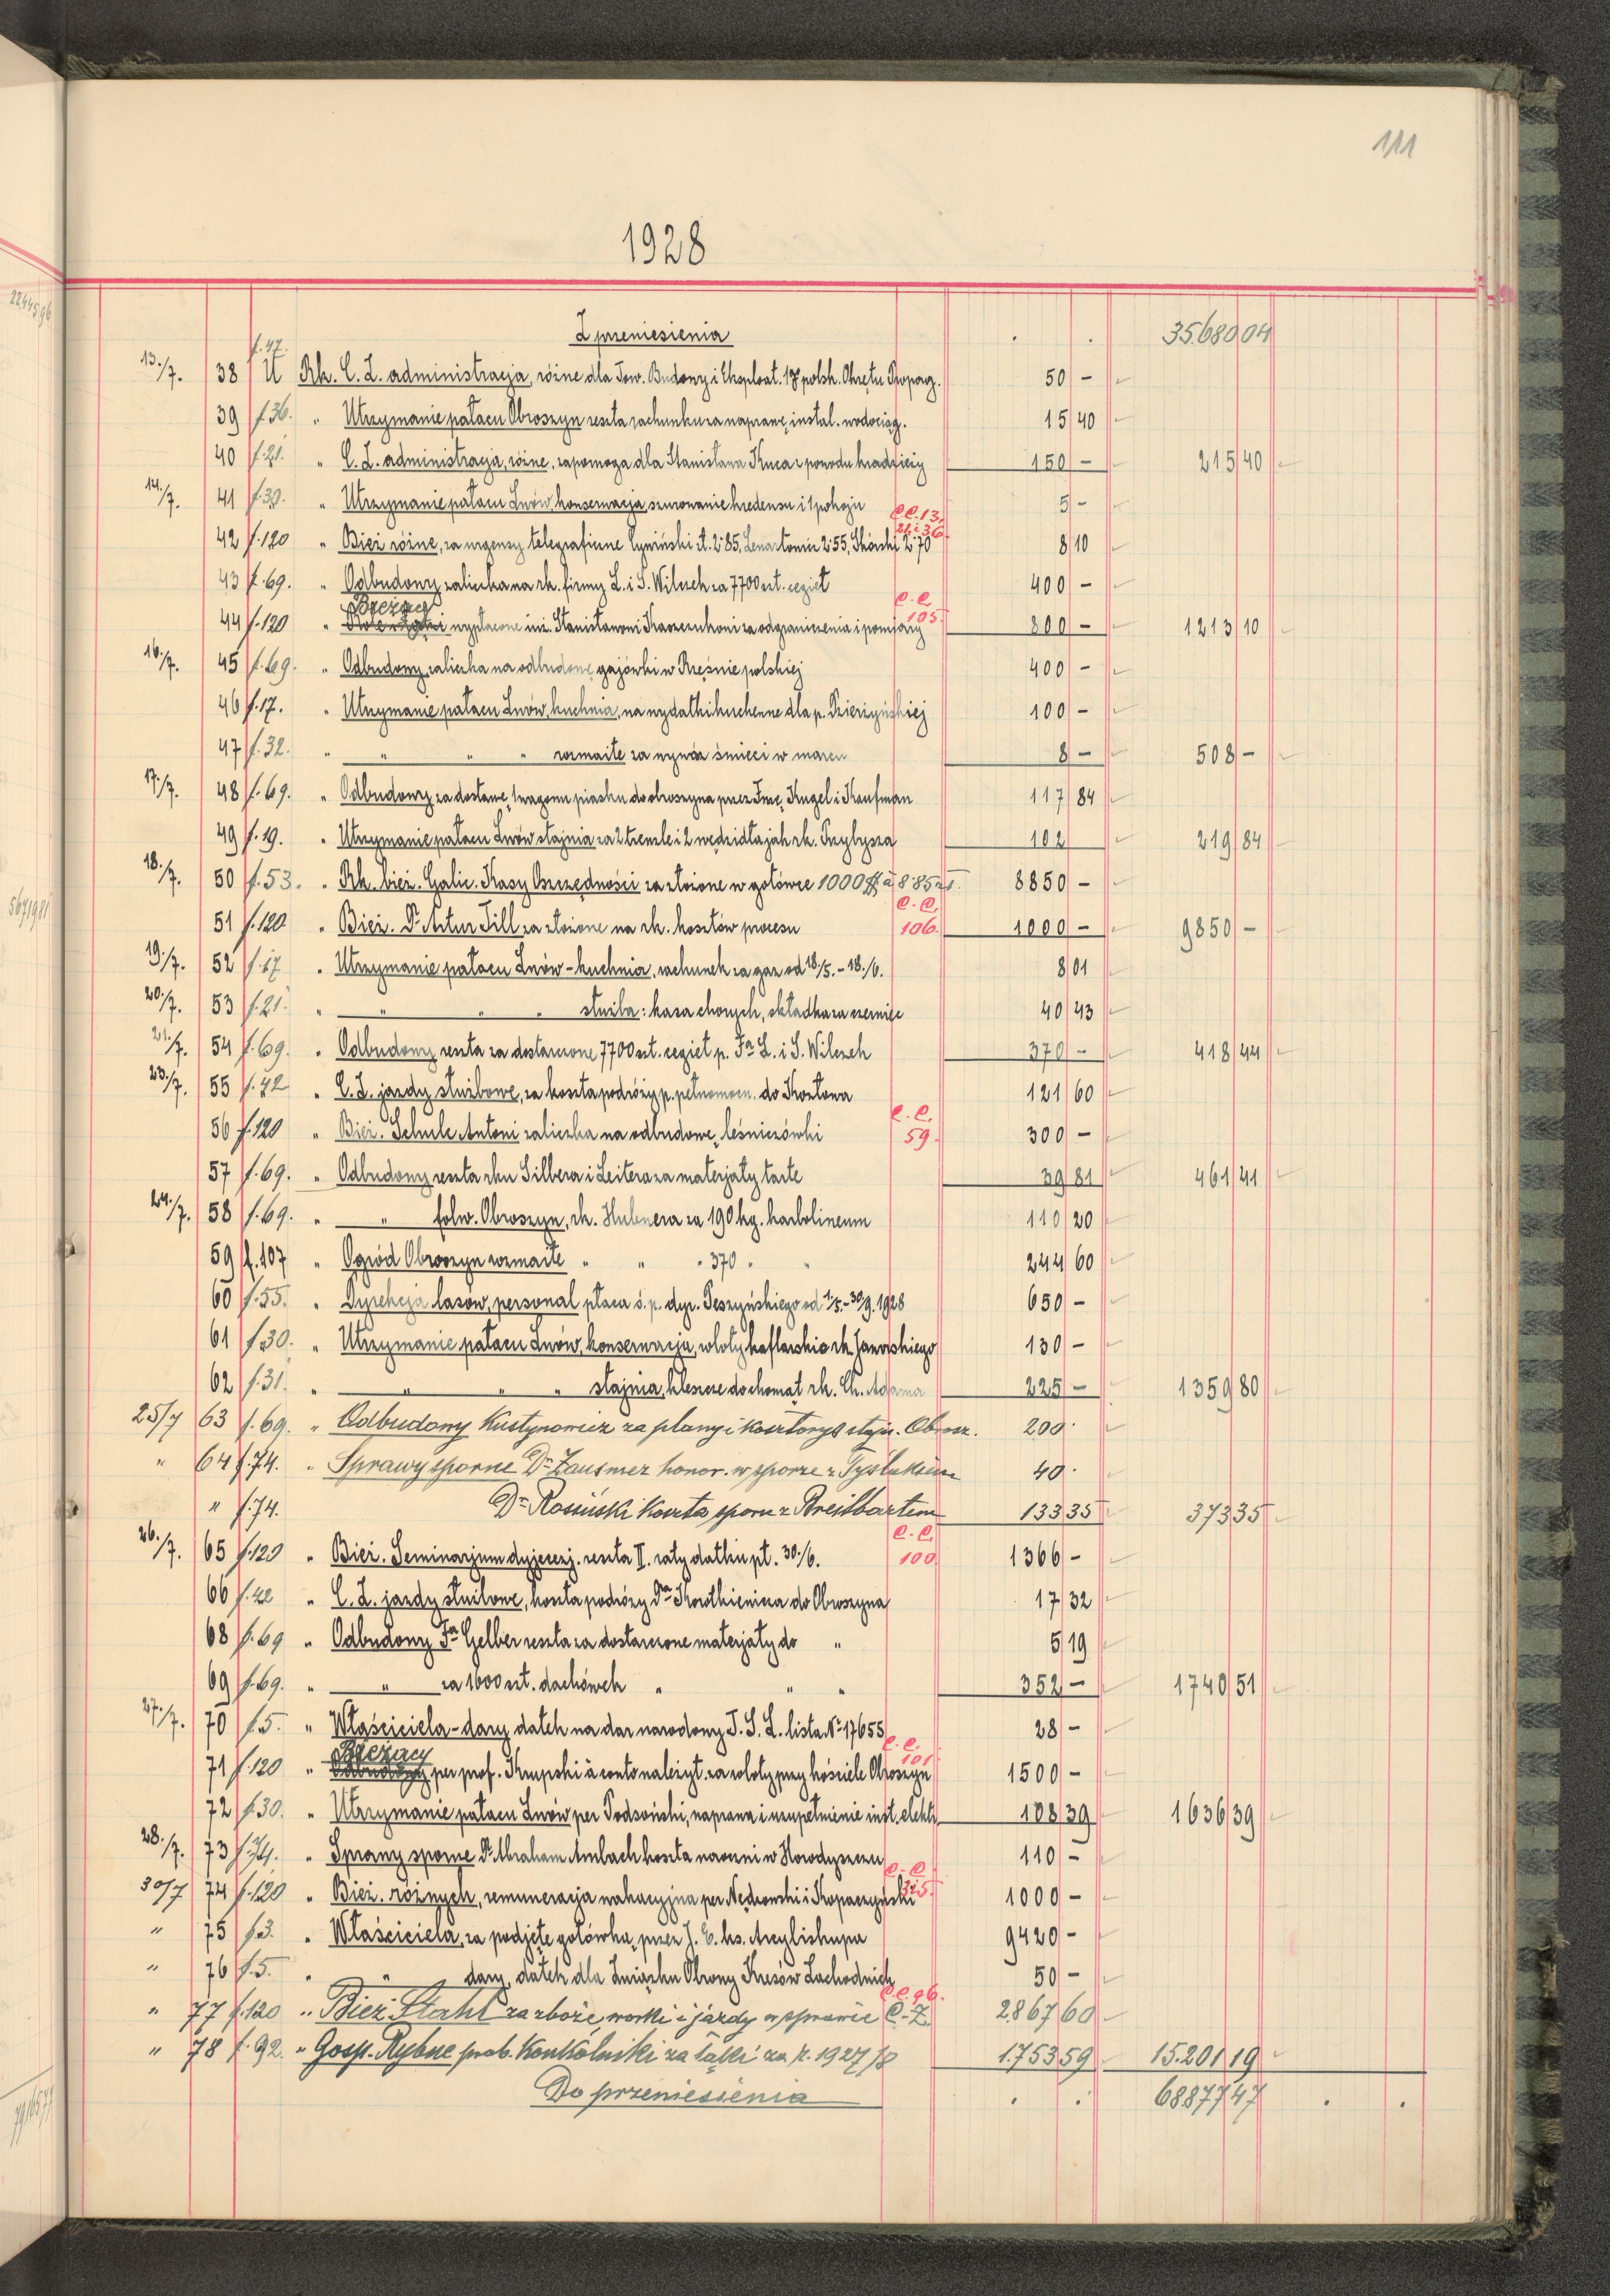 111
1928
Z przeniesienia . . 35.680 04
13./7. 38 f.47. U Rk. C. Z. administracja, różne dla Tow. Budowy i Eksploat. polsk. Okrętu Propag. 50 -
39 f.36. " Utrzymanie pałacu Obroszyn reszta rachunku za naprawę instal. wodociąg. 15 40
40 f.21. " C. Z. administracja, różne, zapomoga dla Stanisława Kruca z powodu kradzieży 150 - 215 40
14./7. 41 f.30. " Utrzymanie pałacu Lwów, konserwacja, szurowanie kredensu i 1 pokoju 5 -
c.c. 13, 21 i 36
42 f.120 " Bież. różne, za urgensy telegrafinne Cywiński zł. 2.85, Lenartowicz 2.55, Skórski 2.70 8 10
43 f.69. " Odbudowy zaliczka na rk. firmy L. i S. Wilesch za 7700 szt. cegieł 400 -
Bieżący c.c. 105.
44 f.120 " wypłacone inż. Stanisławowi Kraszczukowi za odgraniczenia i pomiary 800 - 1213 10
16./7. 45 f.69. " Odbudowy zaliczka na odbudowę gajówki w Rzęśnie polskiej 400 -
46 f.17. " Utrzymanie pałacu Lwów, kuchnia, na wydatki kuchenne dla p. Dzierżyńskiej 100 -
47 f.32. " " " " rozmaite za wywóz śmieci w marcu 8 - 508 -
17./7. 48 f.69. " Odbudowy za dostawę 1 wagonu piasku do obroszyna przez Fmę Kugel i Kaufman 117 84
49 f.19. " Utrzymanie pałacu Lwów stajnia za 2 trenzle i 2 wędzidła jak rk. Przybysza 102 219 84
18./7. 50 f.53. " Rk. bież. Galic. Kasy Oszczędności za złożone w gotówce 1000 $ à 8.85 zł. 8850 -
c.c. 106.
51 f.120 " Bież. Dr Artur Till za złożone na rk. kosztów procesu 1000 - 9850 -
19./7. 52 f.17 " Utrzymanie pałacu Lwów - kuchnia, rachunek za gaz od 18/5. - 18./6. 8 01
20./7. 53 f.21. " " " " służba: kasa chorych, składka za czerwiec 40 43
21./7. 54 f.69. " Odbudowy reszta za dostarczone 7700 szt. cegieł p. Fa L. i S. Wilesch 370 - 418 44
23./7. 55 f.42 " C. Z. jazdy służbowe, za koszta podróży p. pełnomocn. do Kozłowa 121 60
c.c. 59.
56 f.120 " Bież. Schule Antoni zaliczka na odbudowę leśniczówki 300 -
57 f.69. " Odbudowy reszta rku Silbera i Leitera za materjały tarte 39 81 461 41
24./7. 58 f.69. " " folw. Obroszyn, rk. Hubnera za 190 kg. karbolineum 110 20
59 f.107 " Ogród Obroszyn rozmaite " " " 370 " " 244 60
60 f.55. " Dyrekcja lasów, personal płaca ś. p. dyr. Peszyńskiego od 1/5.-30/9. 1928 650 -
61 f.30. " Utrzymanie pałacu Lwów, konserwacja, roboty kaflarskie rk. Janowskiego 130 -
62 f.31. " " " " stajnia, kleszcze do chomąt rk. Ch. Adama 225 - 1359 80
25/7 63 f.69. " Odbudowy Kustynowicz za plany i kosztorys stajn. Obrosz. 200.
" 64 f.74. " Sprawy sporne Dr Zausmer honor. w sporze z Tysłukiem 40.
" f.74. Dr Rosiński koszta sporu z Breitbartem 133 35 373 35
26./7. c.c. 100.
65 f.120 " Bież. Seminarjum dyjecezj. reszta II. raty datku pł. 30./6. 1366 -
66 f.42 " C. Z. jazdy służbowe, koszta podróży Dra Korolkiewicza do Obroszyna 17 32
68 f.69 " Odbudowy Fa Gelber reszta za dostarczone materjały do " 5 19
69 f.69. " " za 1600 szt. dachówek " " " 352 - 1740 51
27./7. 70 f.5. " Właściciela - dary datek na dar narodowy T. S. L. lista No 17655 28 -
Bieżący c.c. 101
71 f.120 " per prof. Krupski à conto należyt. za roboty przy kościele Obroszyn 1500 -
72 f.30. " Utrzymanie pałacu Lwów per Podsoński, naprawa i uzupełnienie inst. elektr. 108 39 1636 39
28./7. 73 f.74. " Sprawy sporne Dr Abraham Ambach koszta narosni w Horodyszczu 110 -
c.c. 325.
30/7 74 f.120 " Bież. różnych, remuneracja wakacyjna per Nędzowski i Kopaczyński 1000 -
" 75 f.3. " Właściciela, za podjęte gotówką przez J. E. ks. Arcybiskupa 9420 -
" 76 f.5. " " dary, datek dla Związku Obrony Kresów Zachodnich 50 -
c.c. 96.
" 77 f.120 " Bież. Stahl za zboże, worki i jazdy w sprawie C.-Z. 2867 60
" 78 f.92. " Gosp. Rybne prob. Konkolniki za łąki za r. 1927/8 1.753 59 15.201 19
Do przeniesienia . . 68877 47 . .